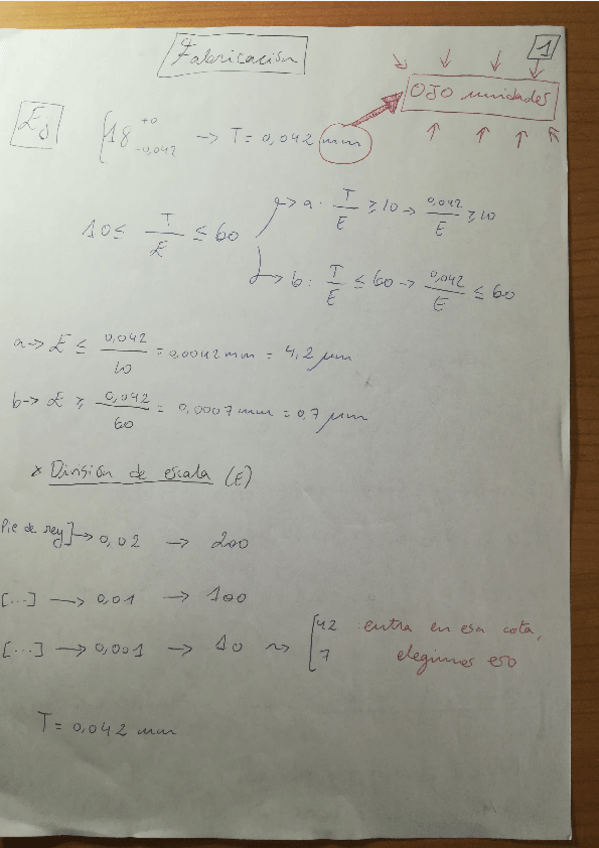 1
Fabricación
OJO unidades
E₀ 18 +0 -0,042 → T = 0,042 mm
10 ≤ T/E ≤ 60
a: T/E ≥ 10 → 0,042/E ≥ 10
b: T/E ≤ 60 → 0,042/E ≤ 60
a → E ≤ 0,042/10 = 0,0042 mm = 4,2 μm
b → E ≥ 0,042/60 = 0,0007 mm = 0,7 μm
x División de escala (E)
Pie de rey] → 0,02 → 200
[...] → 0,01 → 100
[...] → 0,001 → 10 ~> [42 7 entra en esa cota,
elegimos eso
T = 0,042 mm